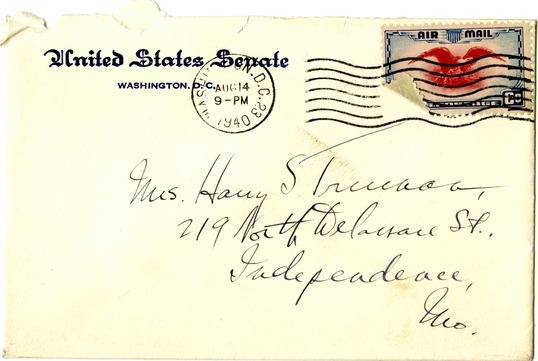 United States Senate
WASHINGTON, D.C.
WASHINGTON, D.C. 23
AUG 14
9-PM
1940
AIR MAIL
6¢
Mrs. Harry S. Truman,
219 North Delaware St.,
Independence,
Mo.